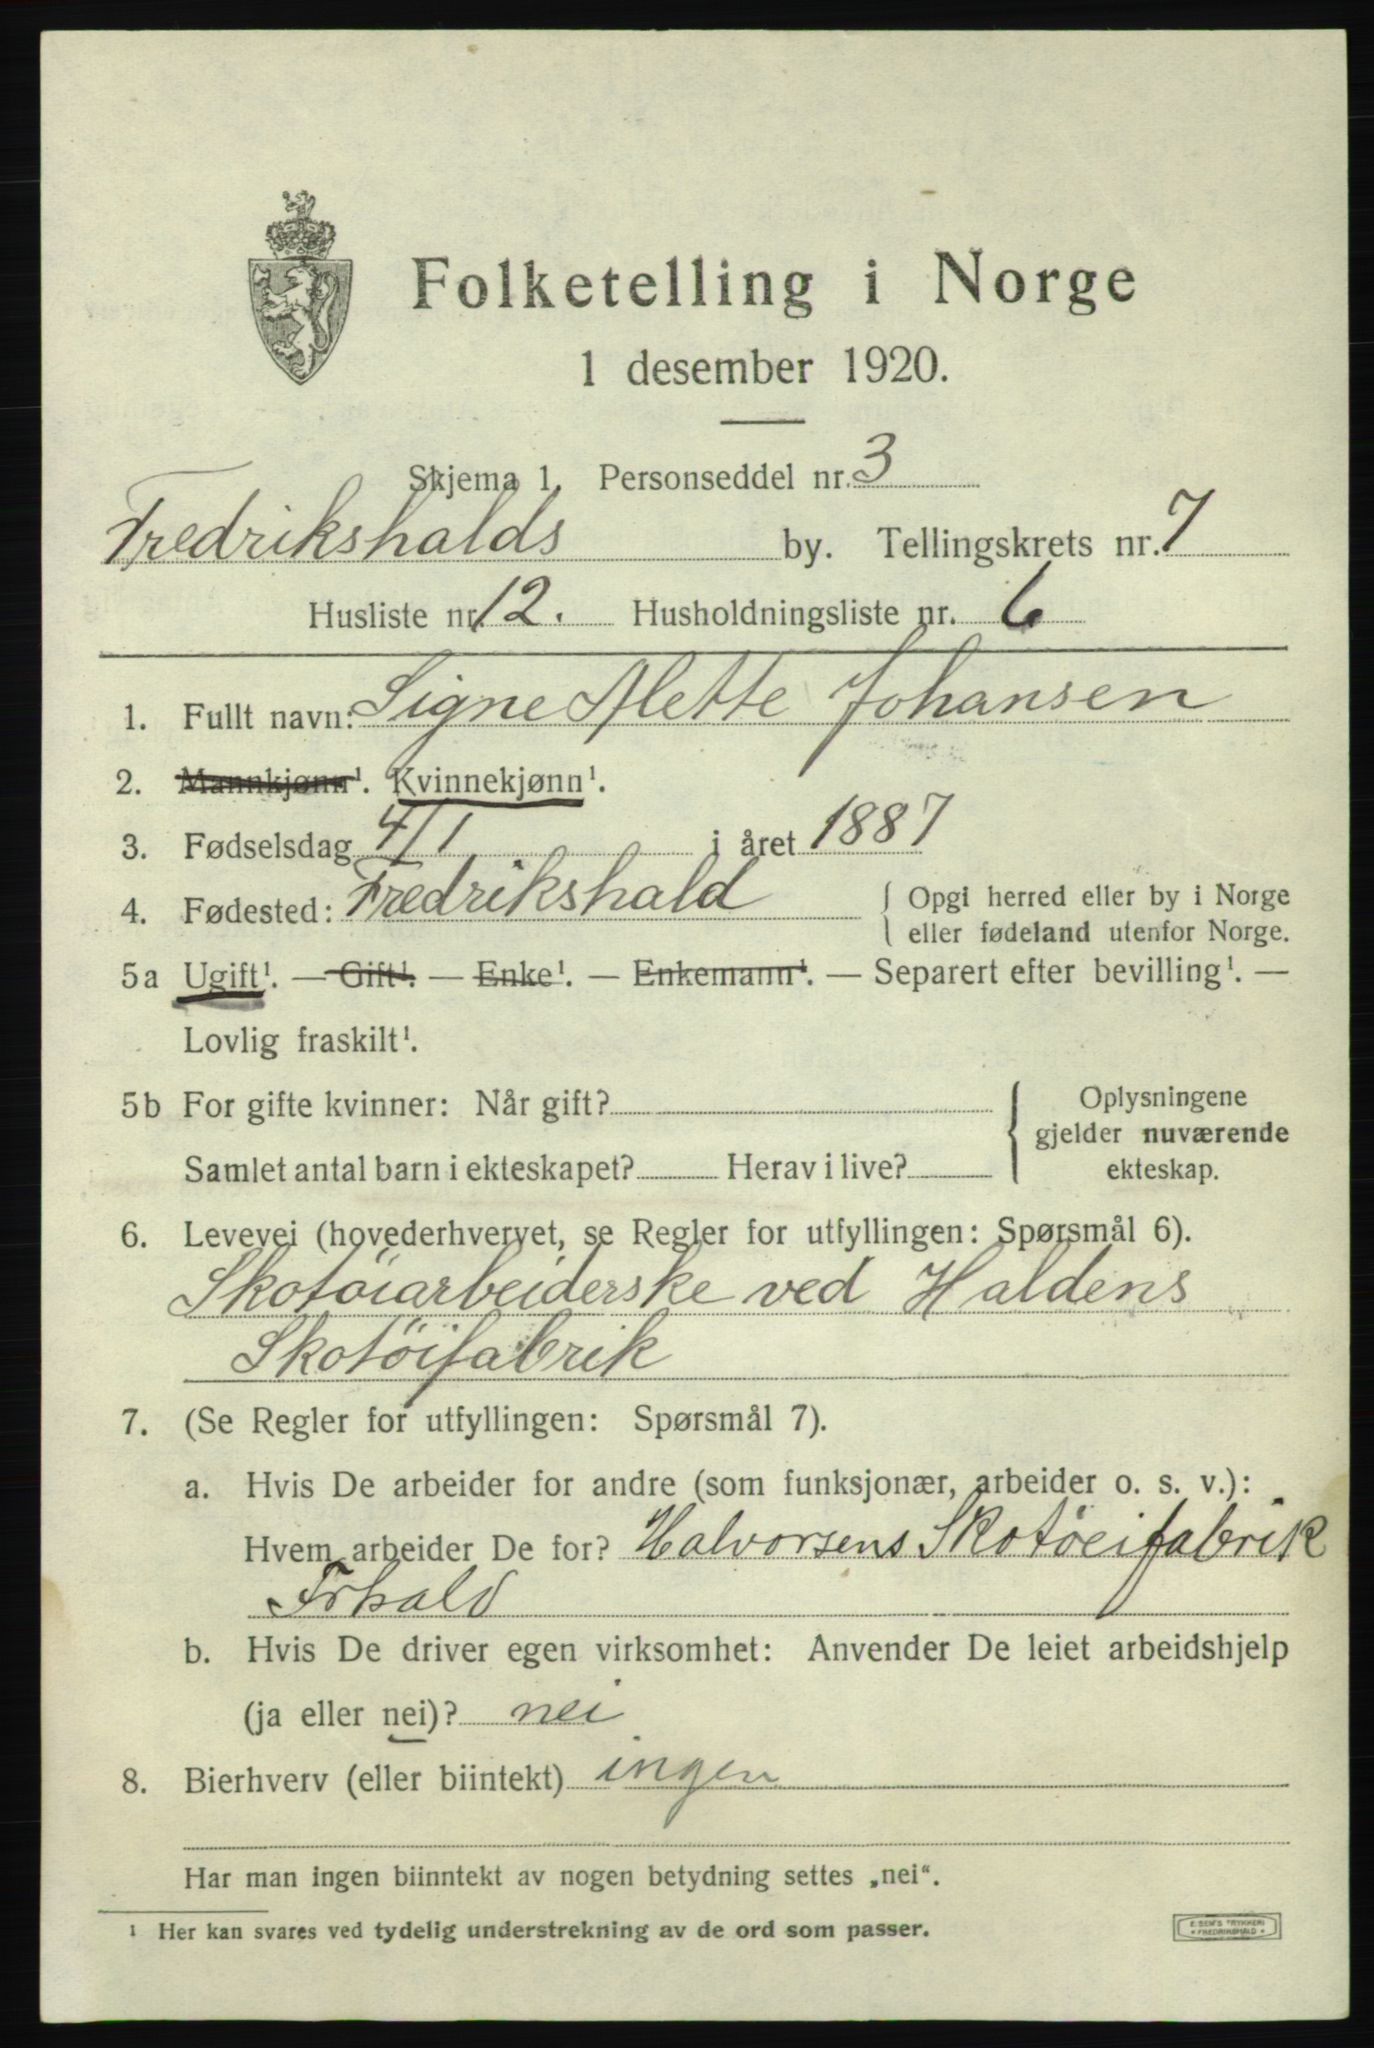 Folketelling i Norge
1 desember 1920.
Skjema 1. Personseddel nr. 3
Fredrikshalds by. Tellingskrets nr. 7
Husliste nr. 12. Husholdningsliste nr. 6
1. Fullt navn: Signe Alette Johansen
2. Mannkjønn¹. Kvinnekjønn¹.
3. Fødselsdag 4/1 i året 1887
4. Fødested: Fredrikshald { Opgi herred eller by i Norge
eller fødeland utenfor Norge.
5a Ugift¹. — Gift¹. — Enke¹. — Enkemann¹. — Separert efter bevilling¹. —
Lovlig fraskilt¹.
5b For gifte kvinner: Når gift? { Oplysningene
gjelder nuværende
Samlet antal barn i ekteskapet? Herav i live? ekteskap.
6. Levevei (hovederhvervet, se Regler for utfyllingen: Spørsmål 6).
Skotøiarbeiderske ved Haldens
Skotøifabrik
7. (Se Regler for utfyllingen: Spørsmål 7).
a. Hvis De arbeider for andre (som funksjonær, arbeider o. s. v.):
Hvem arbeider De for? Halvorsens Skotøeifabrik
Frhald
b. Hvis De driver egen virksomhet: Anvender De leiet arbeidshjelp
(ja eller nei)? nei
8. Bierhverv (eller biintekt) ingen
Har man ingen biinntekt av nogen betydning settes „nei“.
¹ Her kan svares ved tydelig understrekning av de ord som passer.
TRYKKERI
FREDRIKSHALD